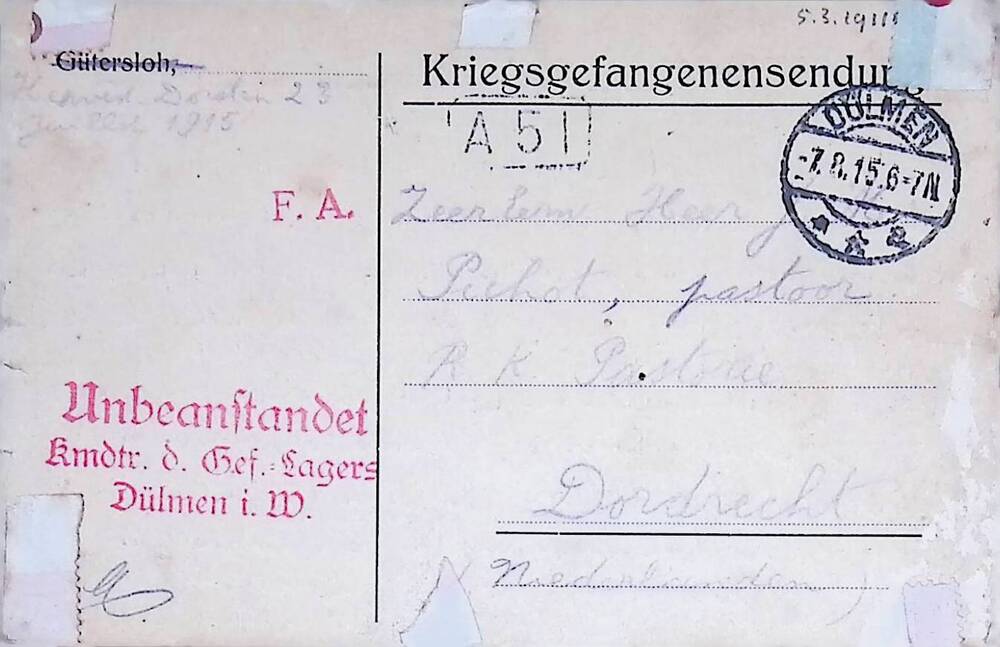 5.3.1911
Gütersloh,
Dorsten 23
Juillet 1915
Kriegsgefangenensendung
A 51
DÜLMEN
-7.8.15.6-7N
F. A.
Zeer Eerw Heer J. K.
Pichot, pastoor
R K Pastorie
Dordrecht
Unbeanſtandet
Kmdtr. d. Gef.=Lagers
Dülmen i. W.